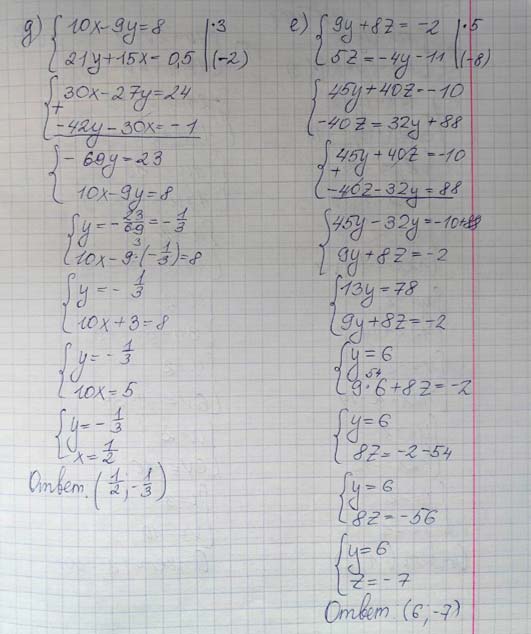 д) {10x-9y=8 |·3
{21y+15x=0,5 |(-2)
{30x-27y=24
+
{-42y-30x=-1
{-69y=23
{10x-9y=8
{y=-23/69=-1/3
{10x-9·(-1/3)=8
3
{y=-1/3
{10x+3=8
{y=-1/3
{10x=5
{y=-1/3
{x=1/2
Ответ. (1/2;-1/3)
е) {9y+8z=-2 |·5
{5z=-4y-11 |(-8)
{45y+40z=-10
{-40z=32y+88
{45y+40z=-10
+
{-40z-32y=88
{45y-32y=-10+88
{9y+8z=-2
{13y=78
{9y+8z=-2
{y=6
54
{9·6+8z=-2
{y=6
{8z=-2-54
{y=6
{8z=-56
{y=6
{z=-7
Ответ. (6;-7)